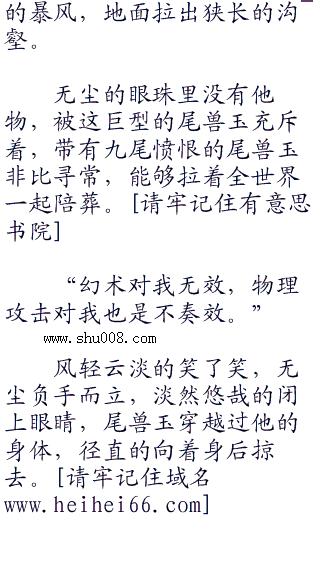 的暴风，地面拉出狭长的沟
壑。
无尘的眼珠里没有他
物，被这巨型的尾兽玉充斥
着，带有九尾愤恨的尾兽玉
非比寻常，能够拉着全世界
一起陪葬。[请牢记住有意思
书院]
“幻术对我无效，物理
攻击对我也是不奏效。”
www.shu008.com
风轻云淡的笑了笑，无
尘负手而立，淡然悠哉的闭
上眼睛，尾兽玉穿越过他的
身体，径直的向着身后掠
去。[请牢记住域名
www.heihei66.com]